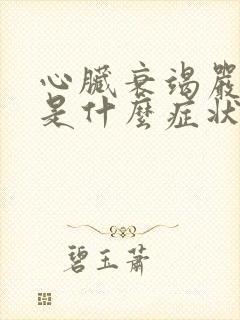 心臟衰竭嚴
是什麼症狀
碧玉蕭